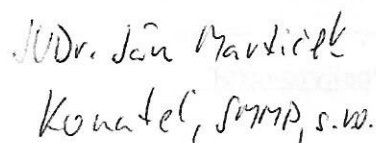 JUDr. Ján Martiček
Konateľ, SMMP, s.r.o.